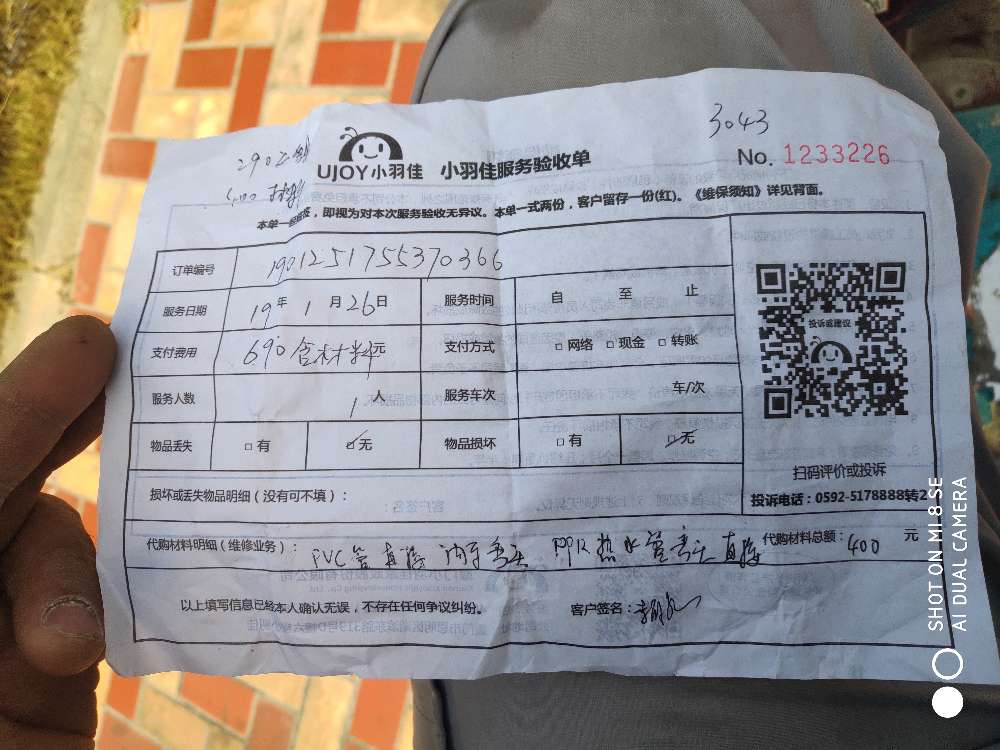 3043
290工钱
400材料
UJOY小羽佳 小羽佳服务验收单
No. 1233226
本单一经签, 即视为对本次服务验收无异议。本单一式两份，客户留存一份(红)。《维保须知》详见背面。
订单编号 190125175537 0366
服务日期 19年 1月26日 服务时间 自 至 止
支付费用 690含材料元 支付方式 □网络 □现金 □转账
服务人数 1人 服务车次 车/次
物品丢失 □有 ☑无 物品损坏 □有 ☑无
投诉或建议
扫码评价或投诉
损坏或丢失物品明细（没有可不填）：
投诉电话：0592-5178888转2
代购材料明细（维修业务）： PVC管直接 内牙弯头 PPR热水管弯头 直接 代购材料总额：400 元
以上填写信息已经本人确认无误，不存在任何争议纠纷。 客户签名：
SHOT ON MI 8 SE
AI DUAL CAMERA